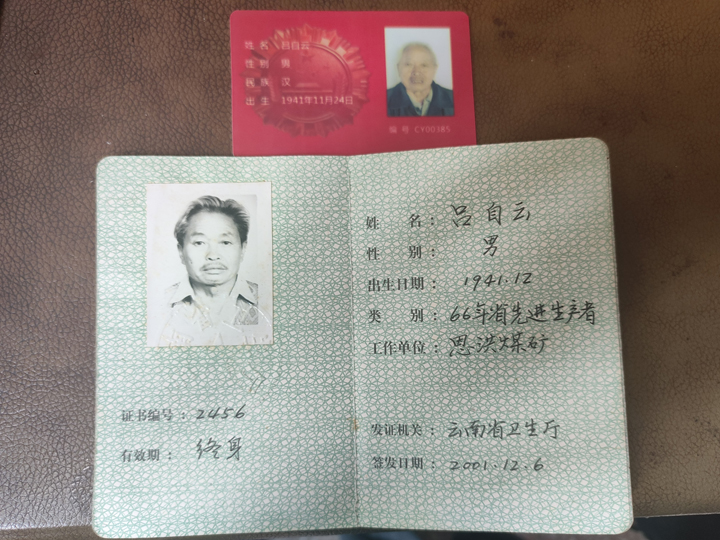 姓 名 吕自云
性 别 男
民 族 汉
出 生 1941年11月24日
编 号 CY00385
姓 名： 吕自云
性 别： 男
出生日期： 1941.12
类 别： 66年省先进生产者
工作单位： 恩洪煤矿
证书编号：2456
有效期： 终身
发证机关： 云南省卫生厅
签发日期： 2001.12.6